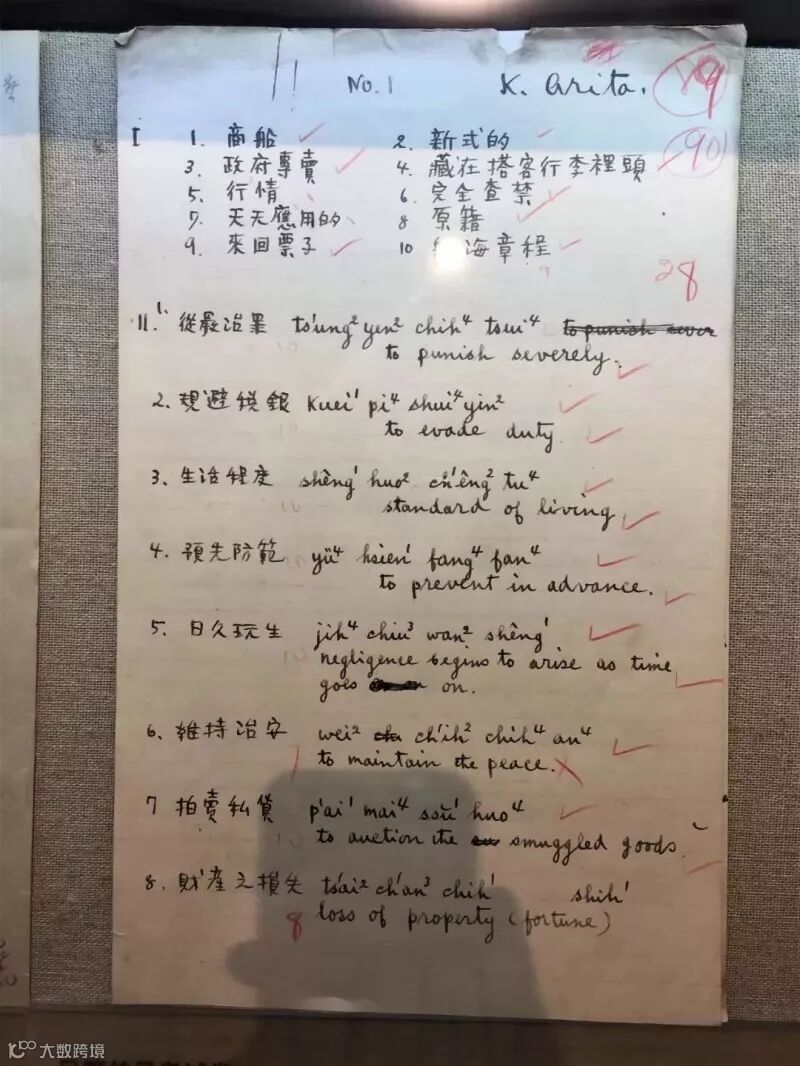 No. 1 K. Arita. 89
90
I 1. 商船 2. 新式的
3. 政府專賣 4. 藏在搭客行李裡頭
5. 行情 6. 完全查禁
7. 天天應用的 8 原籍
9. 來回票子 10 海章程
28
II. 1. 從嚴治罪 ts'ung² yen² chih⁴ tsui⁴ to punish sever
to punish severely.
2. 規避稅銀 Kuei¹ pi⁴ shui⁴ yin²
to evade duty
3. 生活程度 shêng¹ huo² ch'êng² tu⁴
standard of living
4. 預先防範 yü⁴ hsien¹ fang⁴ fan⁴
to prevent in advance.
5. 日久玩生 jih⁴ chiu³ wan² shêng¹
negligence begins to arise as time
goes on.
6. 維持治安 wei² ch'ih² chih⁴ an⁴
to maintain the peace.
7 拍賣私貨 p'ai¹ mai⁴ ssŭ¹ huo⁴
to auction the smuggled goods.
8. 財產之損失 ts'ai² ch'an³ chih¹ shih¹
8 loss of property (fortune)
大数跨境